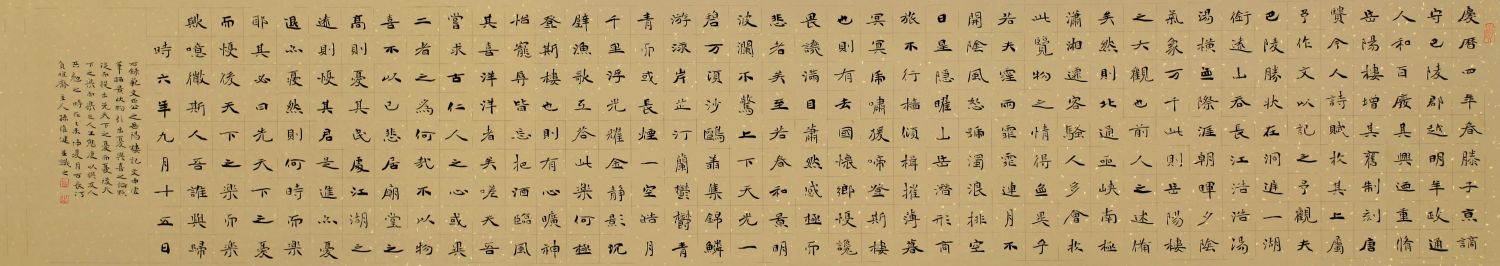 慶曆四年春滕子京謫
守巴陵郡越明年政通
人和百廢具興迺重脩
岳陽樓增其舊制刻唐
賢今人詩賦於其上屬
予作文以記之予觀夫
巴陵勝狀在洞庭一湖
銜遠山吞長江浩浩湯
湯橫無際涯朝暉夕陰
氣象万千此則岳陽樓
之大觀也前人之述備
矣然則北通巫峽南極
瀟湘遷客騷人多會於
此覽物之情得無異乎
若夫霪雨霏霏連月不
開陰風怒號濁浪排空
日星隱曜山岳潛形商
旅不行檣傾楫摧薄暮
冥冥虎嘯猿啼登斯樓
也則有去國懷鄉憂讒
畏譏滿目蕭然感極而
悲者矣至若春和景明
波瀾不驚上下天光一
碧万頃沙鷗翔集錦鱗
游泳岸芷汀蘭鬱鬱青
青而或長煙一空皓月
千里浮光耀金靜影沉
璧漁歌互答此樂何極
登斯樓也則有心曠神
怡寵辱皆忘把酒臨風
其喜洋洋者矣嗟夫吾
嘗求古仁人之心或異
二者之為何哉不以物
喜不以己悲居廟堂之
高則憂其民處江湖之
遠則憂其君是進亦憂
退亦憂然則何時而樂
耶其必曰先天下之憂
而憂後天下之樂而樂
歟噫微斯人吾誰與歸
時六年九月十五日
右錄范文正公之岳陽樓記文
筆描景狀物引出憂與喜之
後而提出先天下之憂而憂後天
下之樂而樂之人生態度以與友人
共勉之時在乙未仲夏月古
主人孫維健並識之